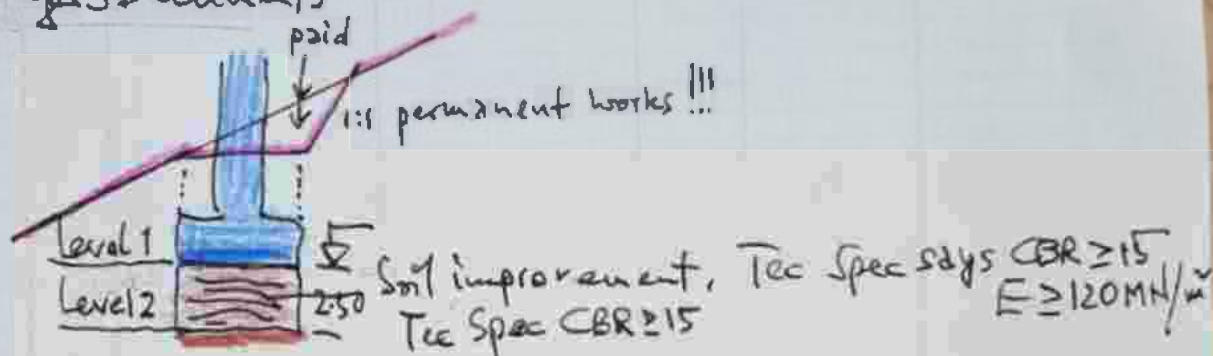 paid
1:1 permanent works !!!
Level 1
Level 2
2.50
Soil improvement, Tec Spec says CBR ≥ 15
E ≥ 120 MN/m²
Tec Spec CBR ≥ 15